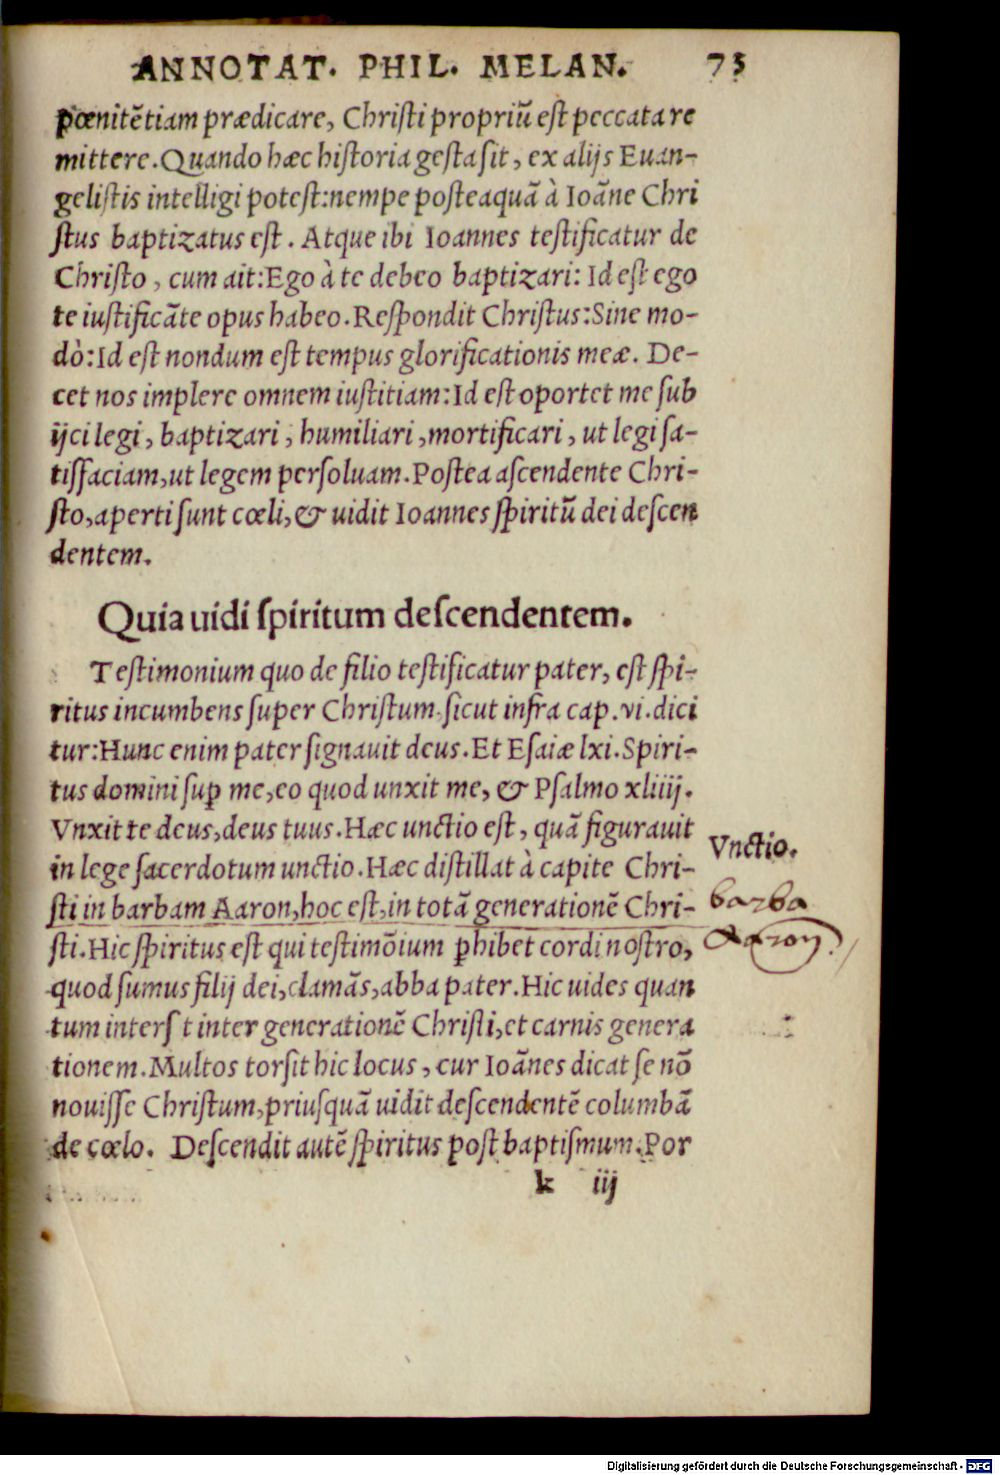 ANNOTAT. PHIL. MELAN. 73
pœnitẽtiam prædicare, Chriſti propriũ eſt peccata re
mittere. Quando hæc hiſtoria geſta ſit, ex alijs Euan-
geliſtis intelligi poteſt: nempe poſteaquã à Ioãne Chri
ſtus baptizatus eſt. Atque ibi Ioannes teſtificatur de
Chriſto, cum ait: Ego à te debeo baptizari: Id eſt ego
te iuſtificãte opus habeo. Reſpondit Chriſtus: Sine mo-
dò: Id eſt nondum eſt tempus glorificationis meæ. De-
cet nos implere omnem iuſtitiam: Id eſt oportet me ſub
ijci legi, baptizari, humiliari, mortificari, ut legi ſa-
tiſfaciam, ut legem perſoluam. Poſtea aſcendente Chri-
ſto, aperti ſunt cœli, & uidit Ioannes ſpiritũ dei deſcen
dentem.
Quia uidi ſpiritum deſcendentem.
Teſtimonium quo de filio teſtificatur pater, eſt ſpi-
ritus incumbens ſuper Chriſtum, ſicut infra cap. vi. dici
tur: Hunc enim pater ſignauit deus. Et Eſaiæ lxi. Spiri-
tus domini ſuꝑ me, eo quod unxit me, & Pſalmo xliiij.
Vnxit te deus, deus tuus. Hæc unctio eſt, quã figurauit
in lege ſacerdotum unctio. Hæc diſtillat à capite Chri-
Vnctio.
ſti in barbam Aaron, hoc eſt, in totã generationẽ Chri-
barba
Aaron
ſti. Hic ſpiritus eſt qui teſtimõium ꝑhibet cordi noſtro,
quod ſumus filij dei, clamãs, abba pater. Hic uides quan
tum interſ t inter generationẽ Chriſti, et carnis genera
tionem. Multos torſit hic locus, cur Ioãnes dicat ſe nõ
nouiſſe Chriſtum, priuſquã uidit deſcendentẽ columbã
de cœlo. Deſcendit autẽ ſpiritus poſt baptiſmum. Por
k iij
Digitalisierung gefördert durch die Deutsche Forschungsgemeinschaft - DFG